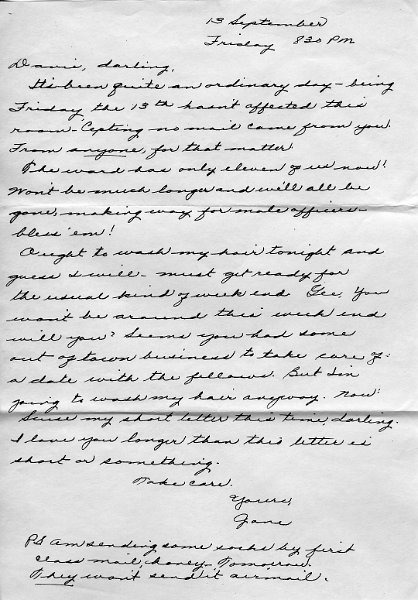 13 September
Friday 830 PM
Davie, darling,
It's been quite an ordinary day - being
Friday the 13th hasn't affected this
room - Cepting no mail came from you.
From anyone, for that matter!
The ward has only eleven of us now!
Won't be much longer and we'll all be
gone, making way for male officers -
bless 'em!
Ought to wash my hair tonight and
guess I will - must get ready for
the usual kind of week end Gee, You
won't be around this week end
will you? Seems you had some
out of town business to take care of -
a date with the fellows. But I'm
going to wash my hair anyway. Now!
'Scuse my short letter this time, darling.
I love you longer than this letter is
short or something.
Take care.
Yours,
Jane
PS Am sending some socks by first
class mail, honey - Tomorrow.
They won't send it airmail.